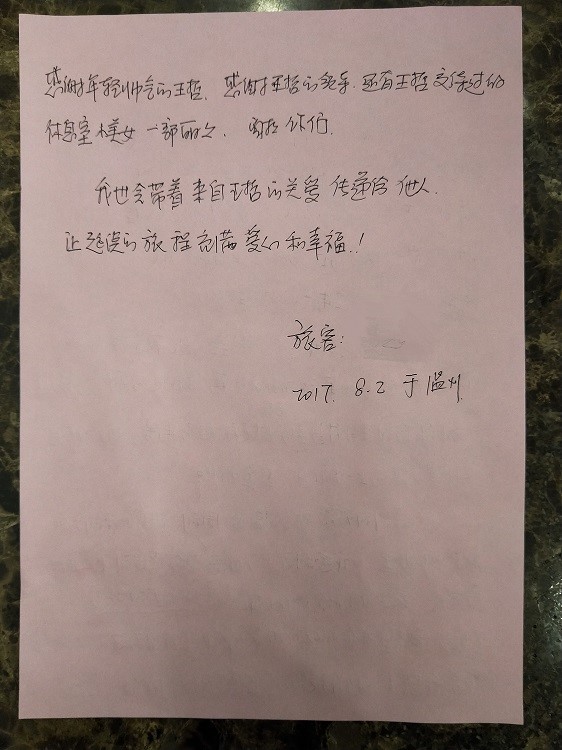 感谢年轻帅气的王哲. 感谢王哲的领导. 还有王哲交待过的
休息室美女 一部丽人. 谢谢你们.
我也会带着来自王哲的关爱 传递给他人.
让的旅程充满爱心和幸福.!
旅客:
2017. 8.2 于温州.